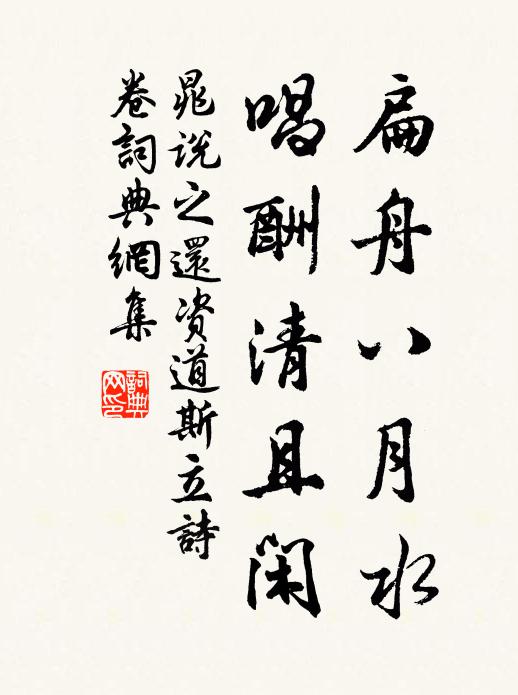 扁舟八月水
唱酬清且闲
晁说之還資道斯立詩
卷詞典網集
詞典网印